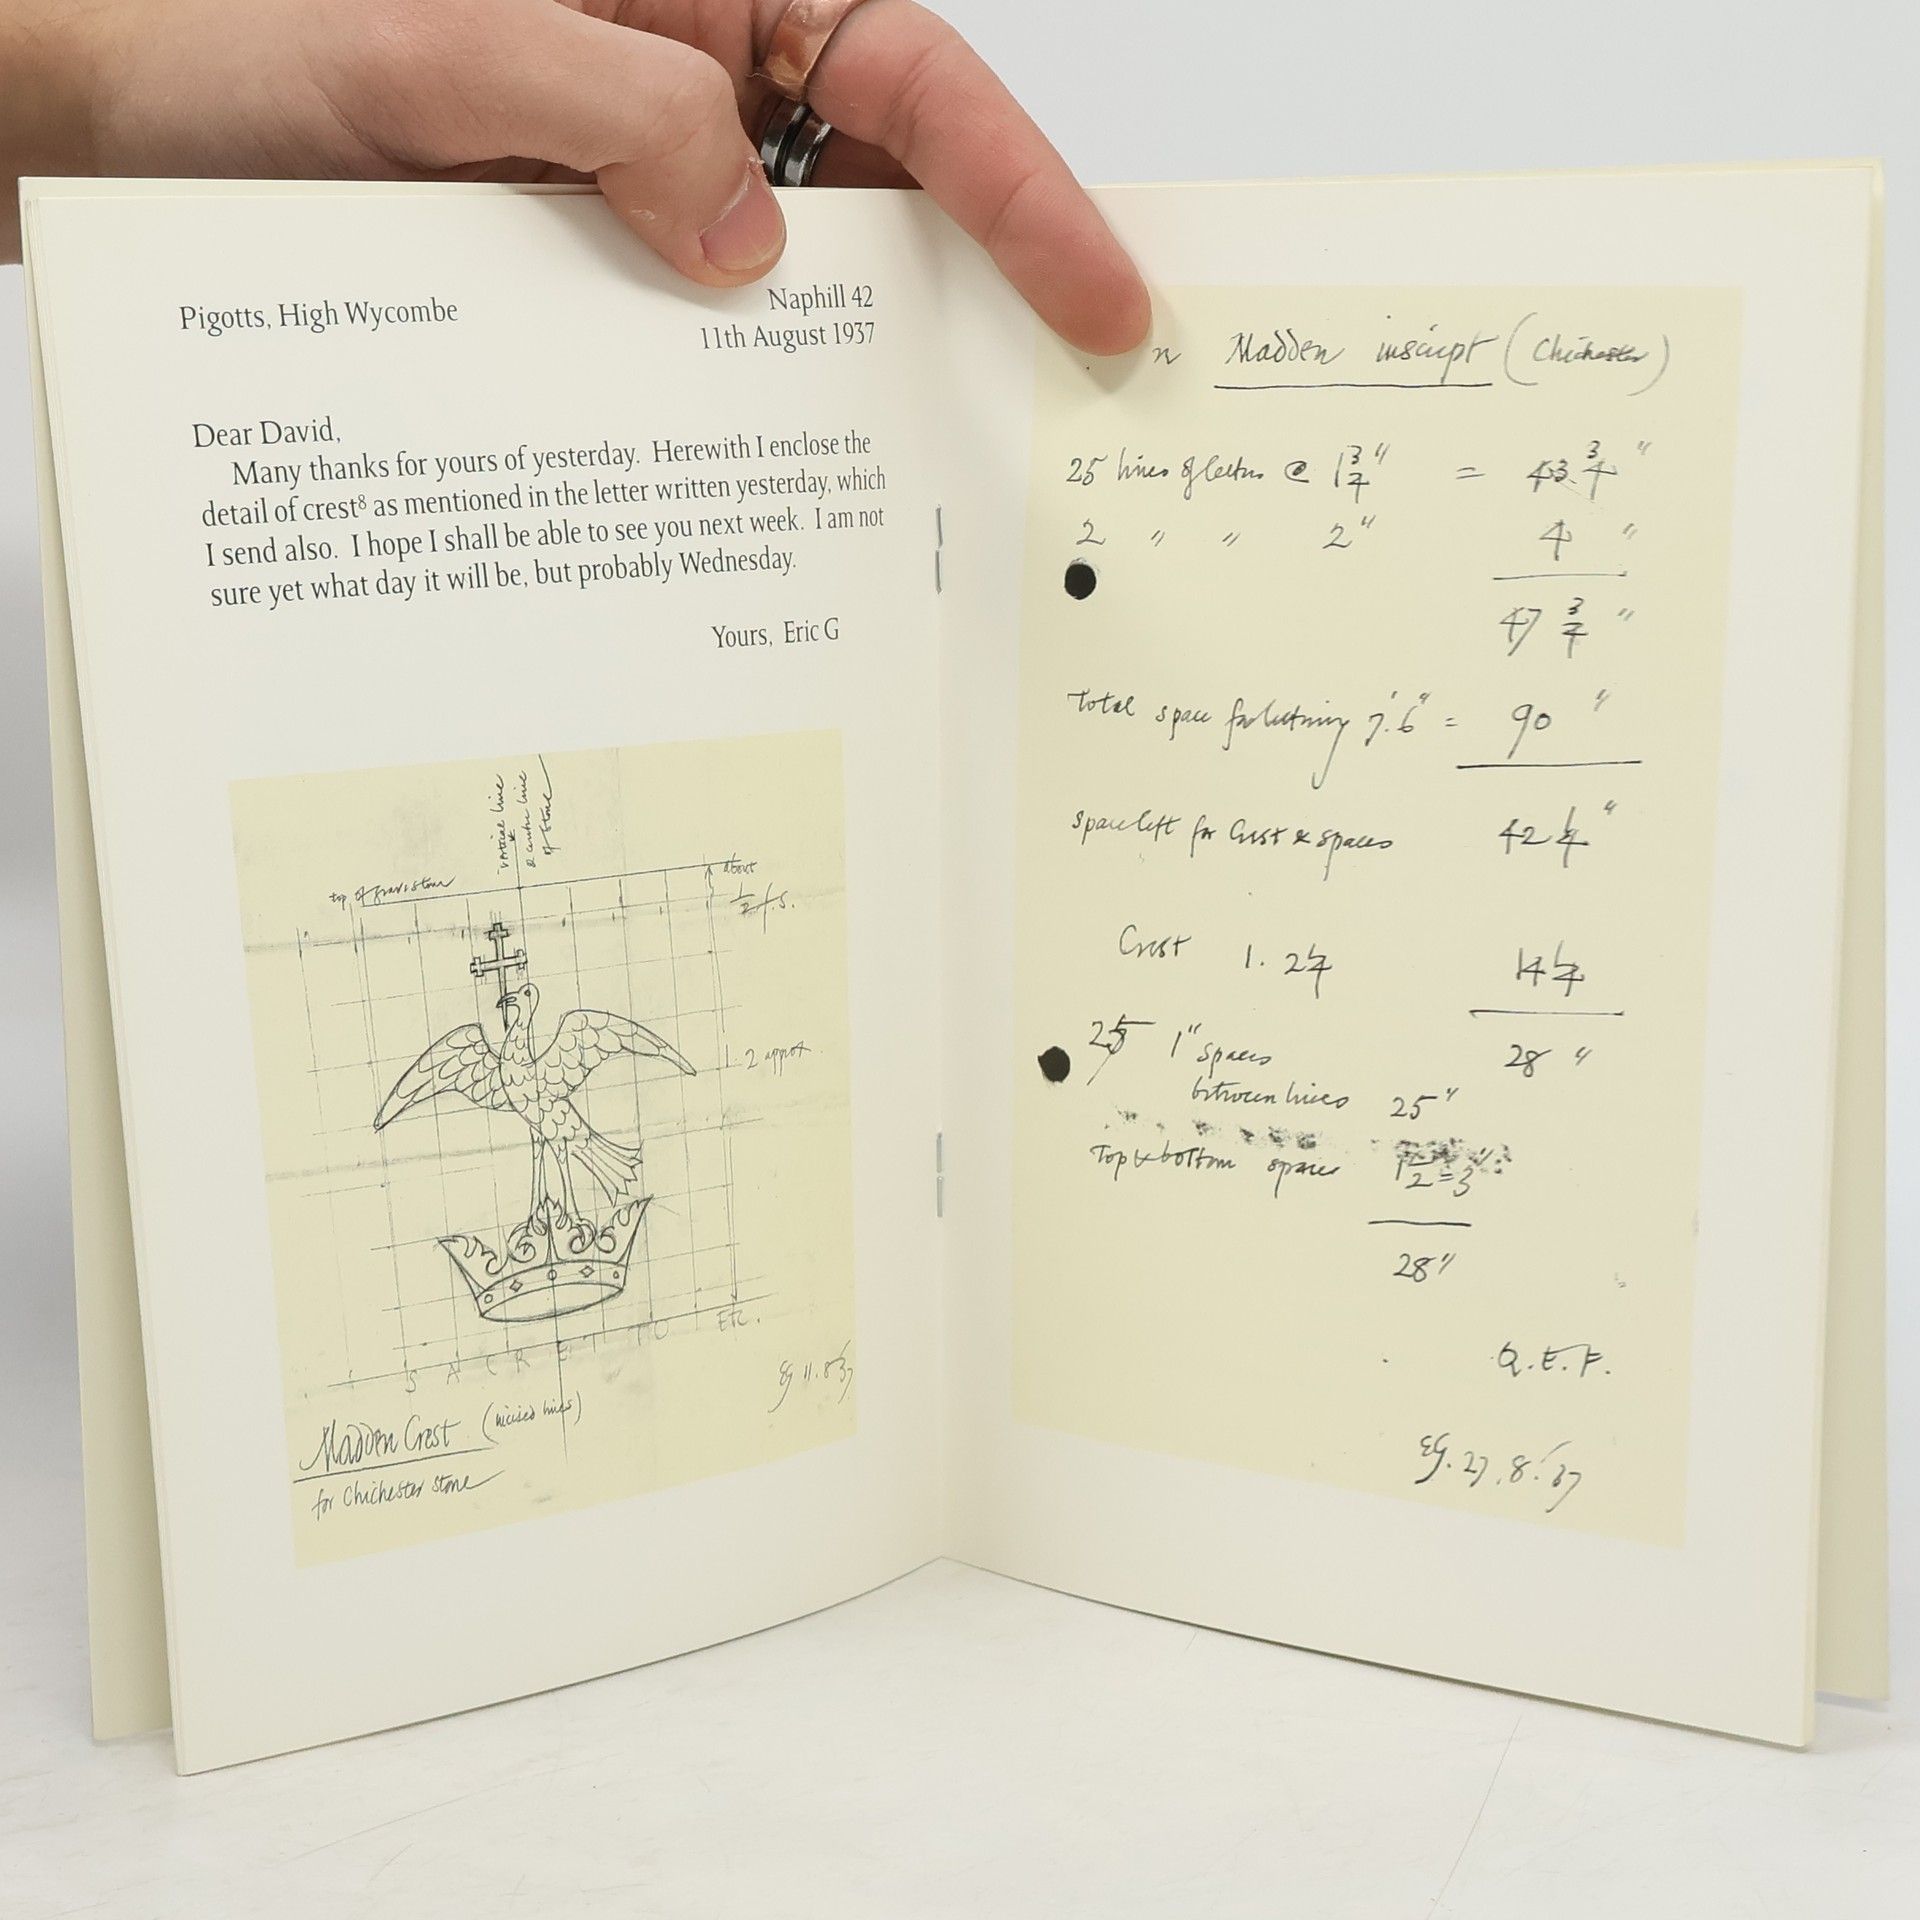 Pigotts, High Wycombe
Naphill 42
11th August 1937
Dear David,
Many thanks for yours of yesterday. Herewith I enclose the
detail of crest⁸ as mentioned in the letter written yesterday, which
I send also. I hope I shall be able to see you next week. I am not
sure yet what day it will be, but probably Wednesday.
Yours, Eric G
vertical line
& centre line
of stone
top of gravestone
about
1/2 f.s.
1. 2 approx.
S A C R E T TO ER.
EG 11.8.37
Madden Crest (incised lines)
for Chichester stone
n Madden inscript (Chichester)
25 lines of letters @ 1 3/4" = 43. 3/4 "
2 " " 2" 4 "
47 3/4 "
Total space for lettering 7'.6" = 90 "
Space left for Crest & spaces 42 1/4 "
Crest 1. 2 1/4 14 1/4
25 1" spaces 28 "
between lines 25"
Top & bottom spaces 1 1/2 = 3"
28"
Q.E.F.
EG. 27.8.37